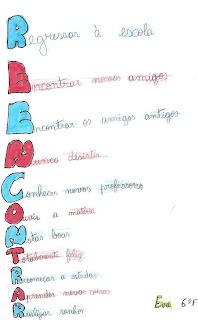 Regressar à escola
Encontrar novos amigos
Encontrar os amigos antigos
Nunca desistir
Conhecer novos professores
Ouvir a matéria
Notas boas
Totalmente feliz
Recomeçar a estudar
Aprender novas coisas
Realizar sonhos
Eva 6ºF